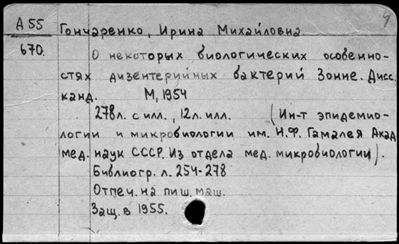 А 55 Гончаренко, Ирина Михайловна
670. О некоторых биологических особенно-
стях дизентерийных бактерий Зонне. Дисс.
канд. М, 1954
278л. с илл., 12л. илл. (Ин-т эпидемио-
логии и микробиологии им. Н.Ф. Гамалея Акад.
мед. наук СССР. Из отдела мед. микробиологии).
Библиогр. л. 254-278
Отпеч. на пиш. маш.
Защ. в 1955.